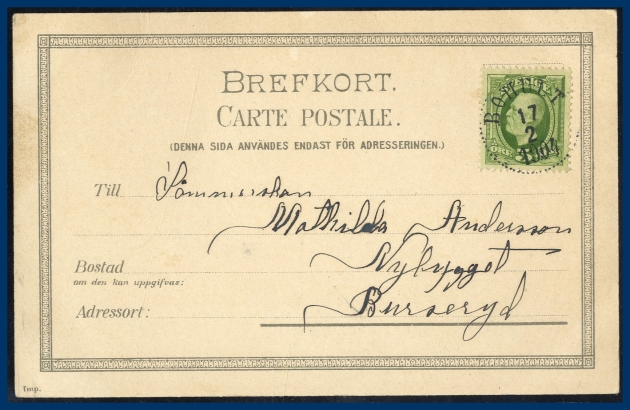 BREFKORT.
CARTE POSTALE.
(DENNA SIDA ANVÄNDES ENDAST FÖR ADRESSERINGEN.)
17
2
1904
ÖRE
Till
Mathilda Andersson
Bostad Nybygget
om den kan uppgifvas:
Adressort: Burseryd
Imp.